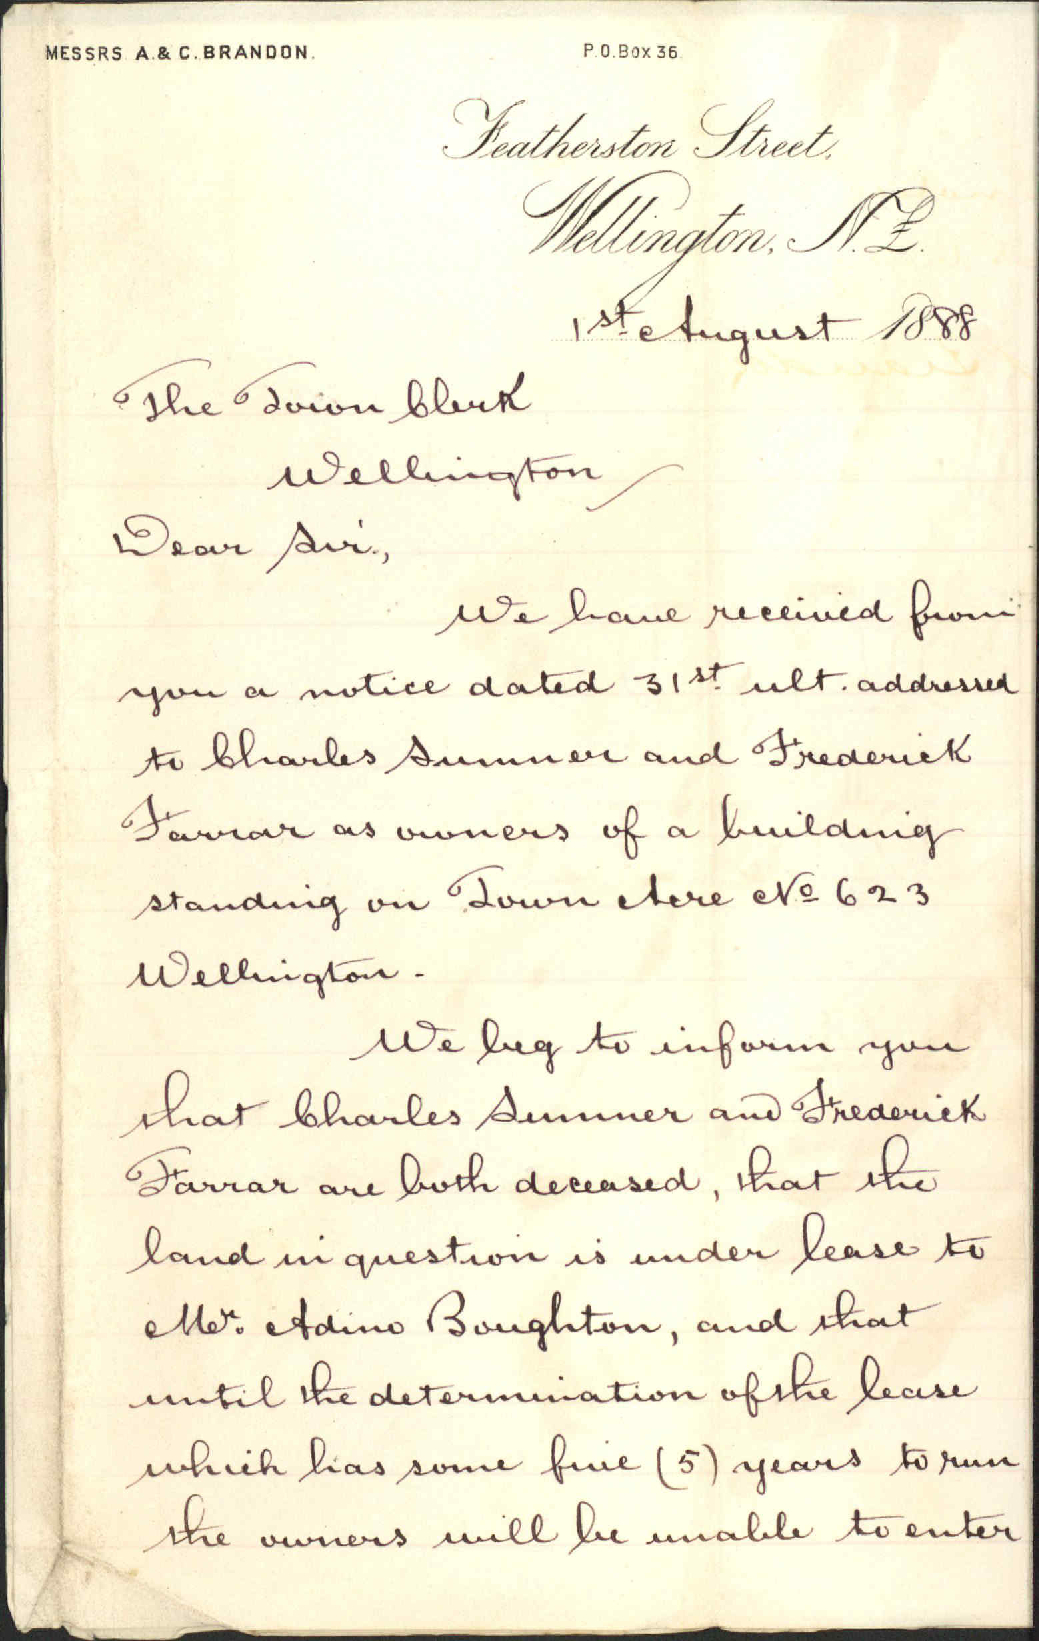 MESSRS A. & C. BRANDON. P.O. Box 36.
Featherston Street,
Wellington, N.Z.
1st August 1888
The Town Clerk
Wellington
Dear Sir,
We have received from
you a notice dated 31st ult. addressed
to Charles Sumner and Frederick
Farrar as owners of a building
standing on Town Acre No 623
Wellington.
We beg to inform you
that Charles Sumner and Frederick
Farrar are both deceased, that the
land in question is under lease to
Mr. Adino Boughton, and that
until the determination of the lease
which has some five (5) years to run
the owners will be unable to enter